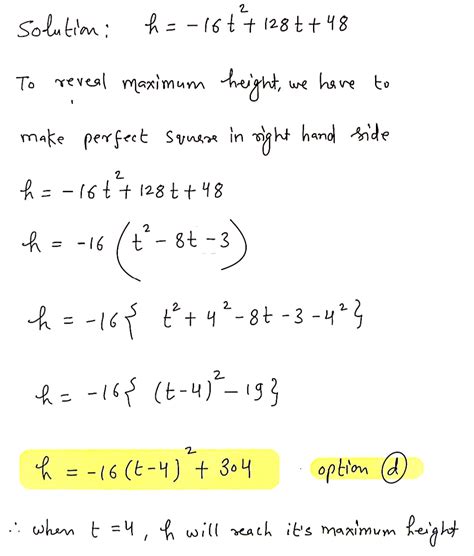 Solution: h = -16t² + 128t + 48
To reveal maximum height, we have to
make perfect square in right hand side
h = -16t² + 128t + 48
h = -16 (t² - 8t - 3)
h = -16{ t² + 4² - 8t - 3 - 4² }
h = -16{ (t-4)² - 19 }
h = -16(t-4)² + 304 option (d)
∴ when t = 4, h will reach it's maximum height